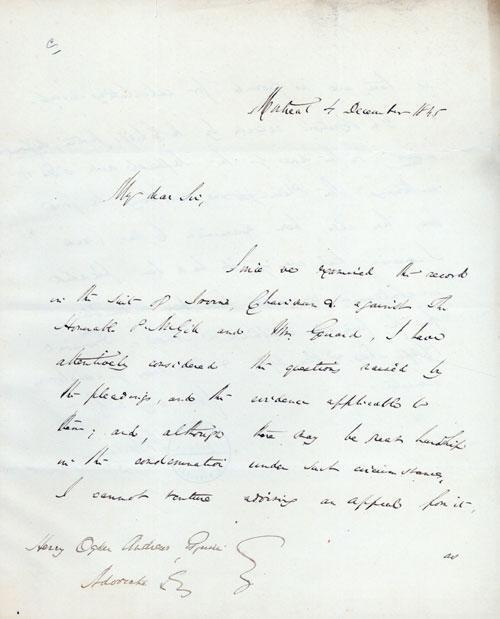 Montreal 4 December 1845
My dear Sir,
Since we examined the record
in the suit of against The
Honorable P. McGill and Mr. , I have
attentively considered the questions raised by
the pleadings, and the evidence applicable to
them; and, although there may be great hardship
in the condemnation under such circumstances,
I cannot venture advising an appeal from it,
as
Henry Ogden Andrews, Esquire
Advocate &c